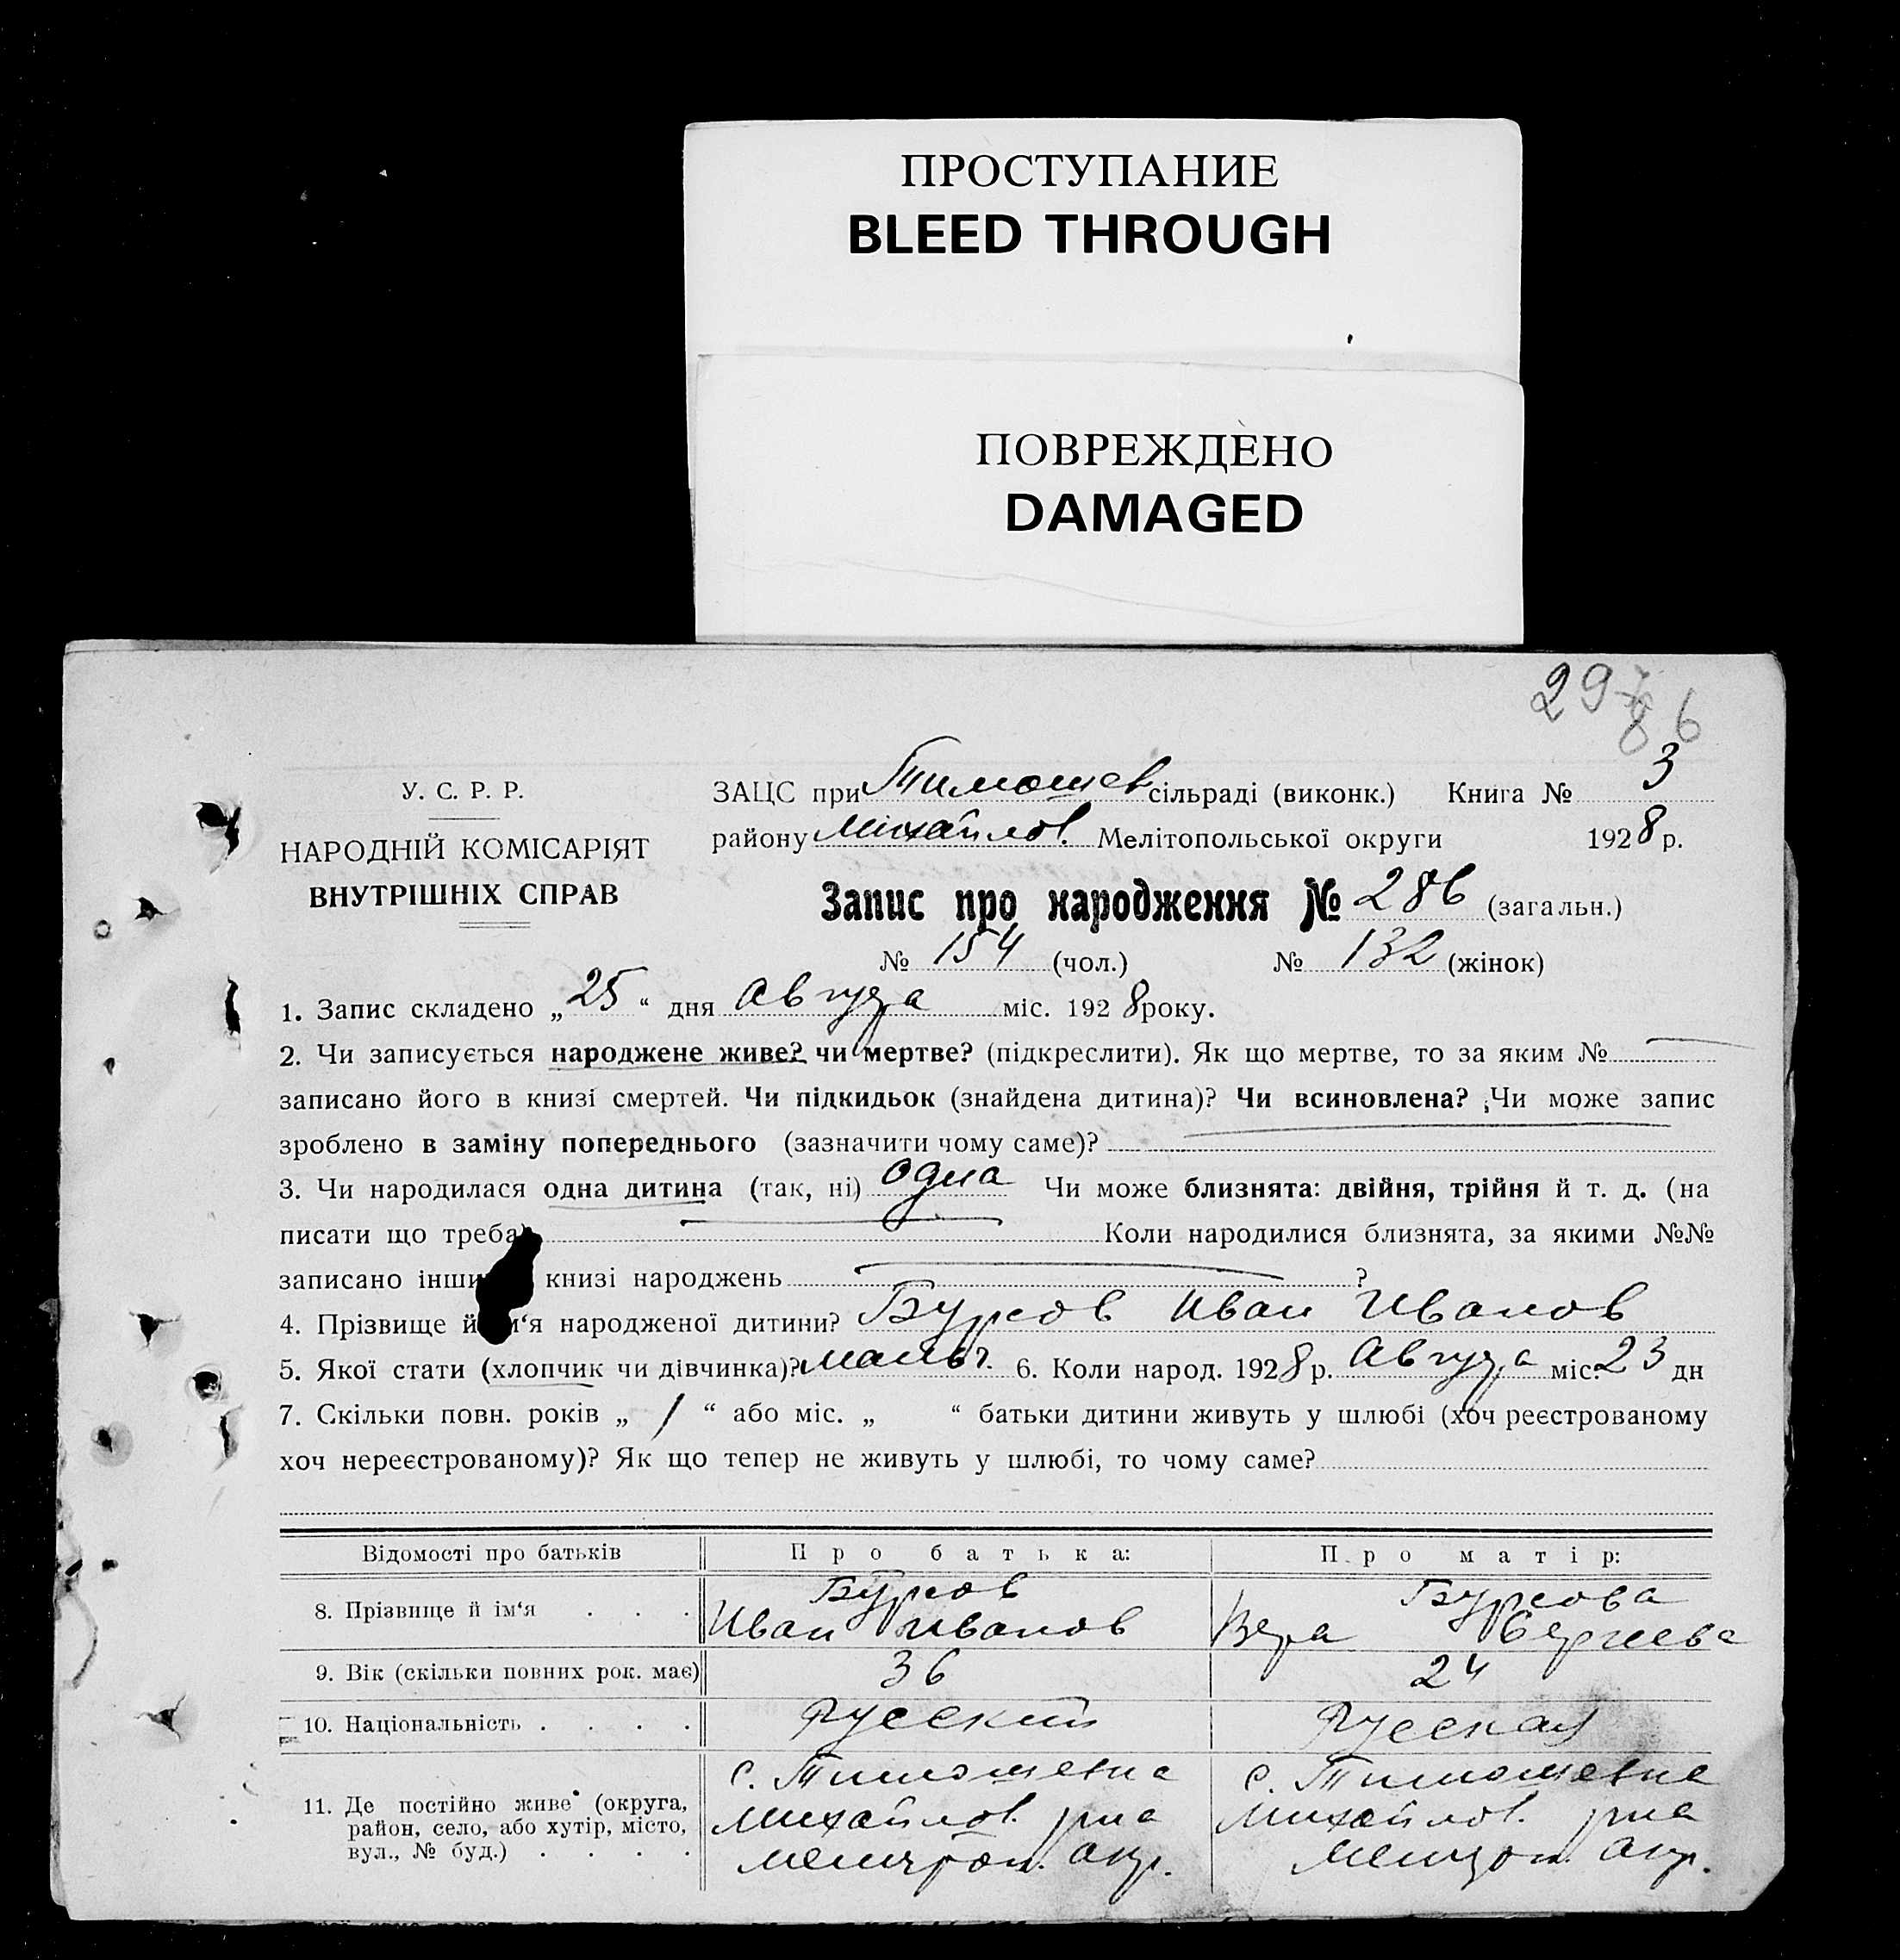 ПРОСТУПАНИЕ
BLEED THROUGH
ПОВРЕЖДЕНО
DAMAGED
29 6
У. С. Р. Р.
НАРОДНІЙ КОМІСАРІЯТ
ВНУТРІШНІХ СПРАВ
ЗАЦС при Тимошев сільраді (виконк.) Книга № 3
району Михайлов. Мелітопольської округи 1928 р.
Запис про народження № 286 (загальн.)
№ 154 (чол.) № 132 (жінок)
1. Запис складено „25“ дня Августа міс. 1928 року.
2. Чи записується народжене живе? чи мертве? (підкреслити). Як що мертве, то за яким № —
записано його в книзі смертей. Чи підкидьок (знайдена дитина)? Чи всиновлена? Чи може запис
зроблено в заміну попереднього (зазначити чому саме)?
3. Чи народилася одна дитина (так, ні) одна Чи може близнята: двійня, трійня й т. д. (на
писати що треба) Коли народилися близнята, за якими №№
записано інши книзі народжень ?
4. Прізвище й ім‘я народженої дитини? Бурсов Иван Иванов
5. Якої стати (хлопчик чи дівчинка)? мальч. 6. Коли народ. 1928 р. Августа міс. 23 дн
7. Скільки повн. років „ 1 “ або міс. „ “ батьки дитини живуть у шлюбі (хоч реєстрованому
хоч нереєстрованому)? Як що тепер не живуть у шлюбі, то чому саме?
Відомості про батьків Про батька: Про матір:
8. Прізвище й ім‘я . . . Бурсов Иван Иванов Бурсова Вера Сергеева
9. Вік (скільки повних рок. має) 36 24
10. Національність . . . . Русский Русская
11. Де постійно живе (округа, район, село, або хутір, місто, вул., № буд.) . . . .
с. Тимошевка с. Тимошевке
Михайлов. р-на Михайлов. р-на
Мелитоп. окр. Мелитоп. окр.